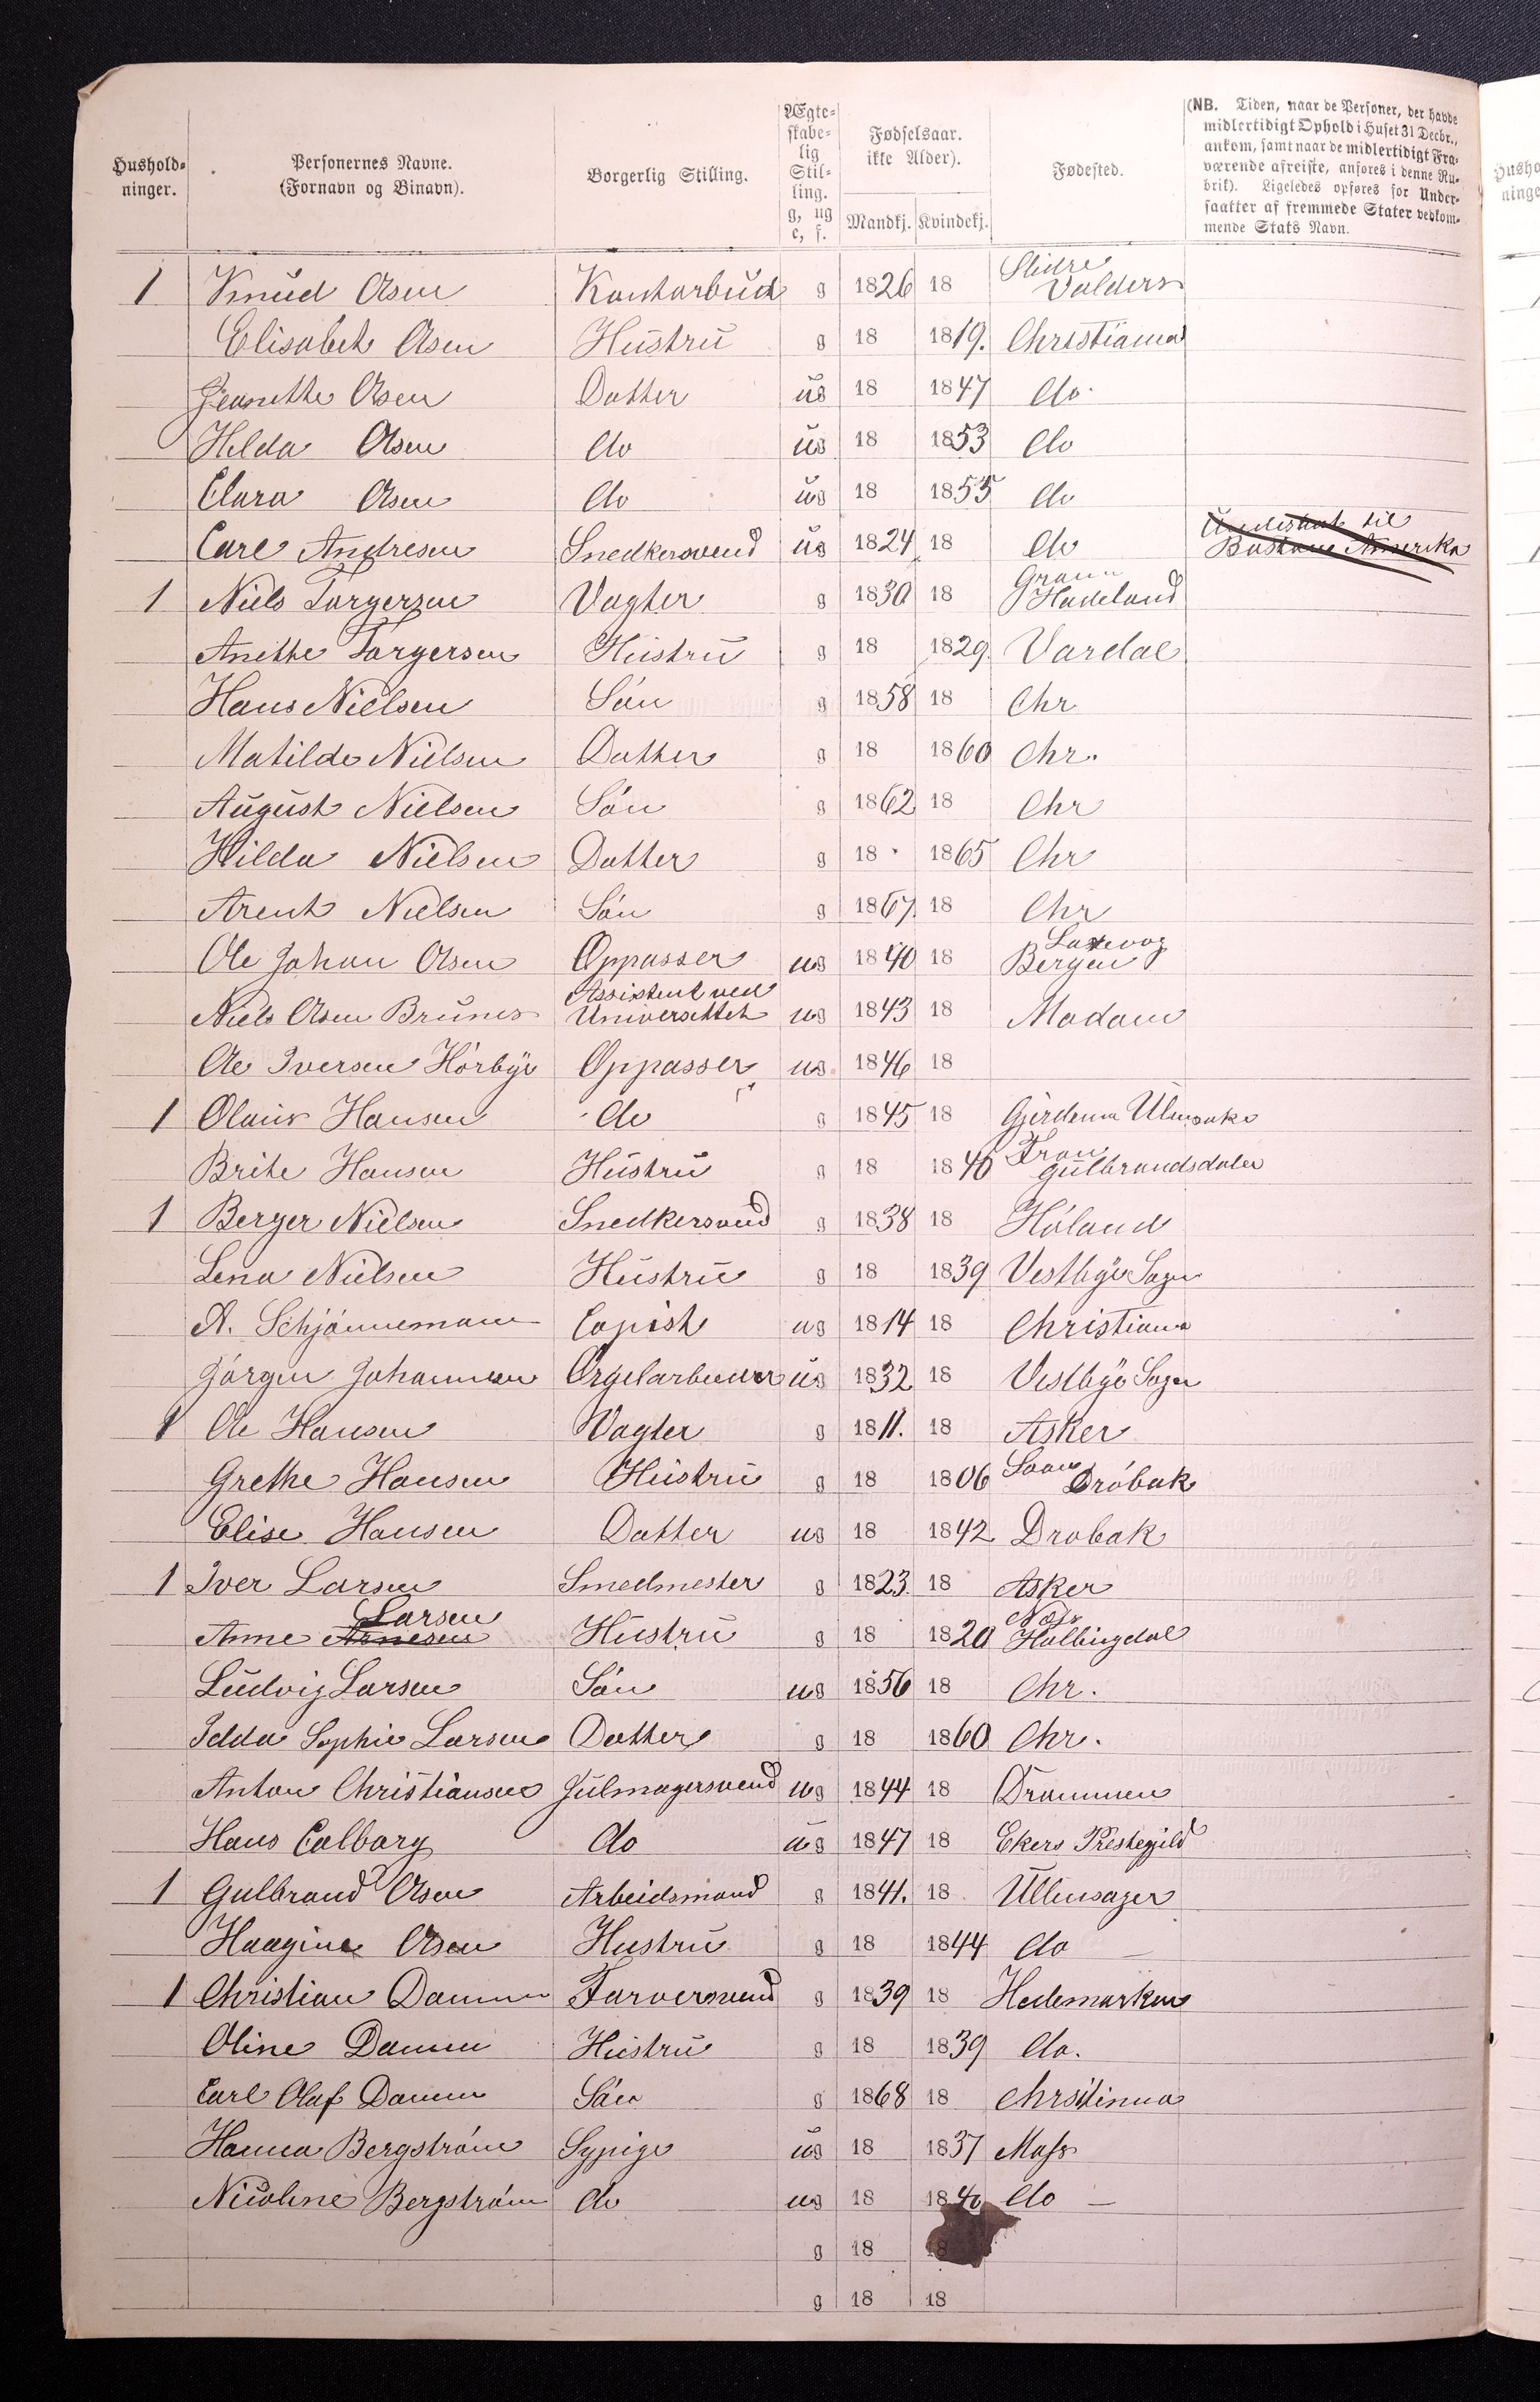 Hushold-ninger. Personernes Navne. (Fornavn og Binavn). Borgerlig Stilling. Ægte-skabe-lig Stil-ling. g, ug e, f. Fødselsaar. ikke Alder). Mandkj. Kvindekj. Fødested. (NB. Tiden, naar de Personer, der havde midlertidigt Ophold i Huset 31 Decbr., ankom, samt naar de midlertidigt Fra-værende afreiste, anføres i denne Ru-brik). Ligeledes opføres for Under-saatter af fremmede Stater vedkom-mende Stats Navn.
1 Knud Olsen Kontorbud g 1826 18 Slidre Valders
Elisabet Olsen Hustru g 18 1819. Chrestiania
Jeanette Olsen Datter ug 18 1847 do.
Hilda Olsen do ug 18 1853 do
Clara Olsen do ug 18 1855 do
Carl Andresen Snedkersvend ug 1824 18 do til Amerika
1 Niels Torgersen Vagter g 1830 18 Grann Hadeland
Anethe Torgersen Hustru g 18 1829. Vardal
Hans Nielsen Sön g 1858 18 Chr
Matilde Nielsen Datter g 18 1860 Chr.
August Nielsen Sön g 1862 18 Chr
Hilda Nielsen Datter g 18 1865 Chr
Arent Nielsen Sön g 1867. 18 Chr
Ole Johan Olsen Oppasser ug 1840 18 Laxevog Bergen
Niels Olsen Brunes Assistent ved Universittet ug 1843 18 Modam
Ole Iversen Hörbye Oppasser ug 1846 18
1 Olaus Hansen do g 1845 18 Gjerdenn
Brite Hansen Hustru g 18 1840 Fron gulbrandsdalen
1 Berger Nielsen Snedkersvend g 1838 18 Höland
Lena Nielsen Hustru g 18 1839 Vestbye Sogn
A. Schjönnemann Copist ug 1814 18 Christiania
Jörgen Johannesen Orgelarbeider ug 1832 18 Vestbye Sogn
1 Ole Hansen Vagter g 1811. 18 Asker
Grethe Hansen Hustru g 18 1806 Dröbak
Elise Hansen Datter ug 18 1842 Drobak
1 Iver Larsen Smedmester g 1823. 18 Asker
Anne Arnesen Larsen Hustru g 18 1820 Næs Hallingdal
Ludvig Larsen Sön ug 1856 18 Chr.
Idda Sophie Larsen Datter g 18 1860 Chr.
Anton Christiansen Julmagersvend ug 1844 18 Drammen
Hans Calbarg do ug 1847 18 Ekers Prestegjeld
1 Gulbrand Olsen Arbeidsmand g 1841. 18 Ullensager
Haagine Olsen Hustru g 18 1844 do —
1 Christian Damm Farversvend g 1839 18 Hedemarken
Oline Damm Hustru g 18 1839 do.
Carl Olaf Damm Sön g 1868 18 Chrsitinna
Hanna Bergström Sypige ug 18 1837 Moss
Nicoline Bergström do ug 18 1840 do —
g 18 18
g 18 18